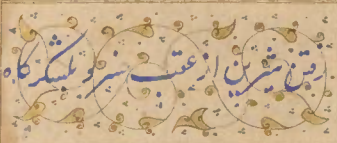 رفتن شیرین از عقب خسرو بلشکرگاه